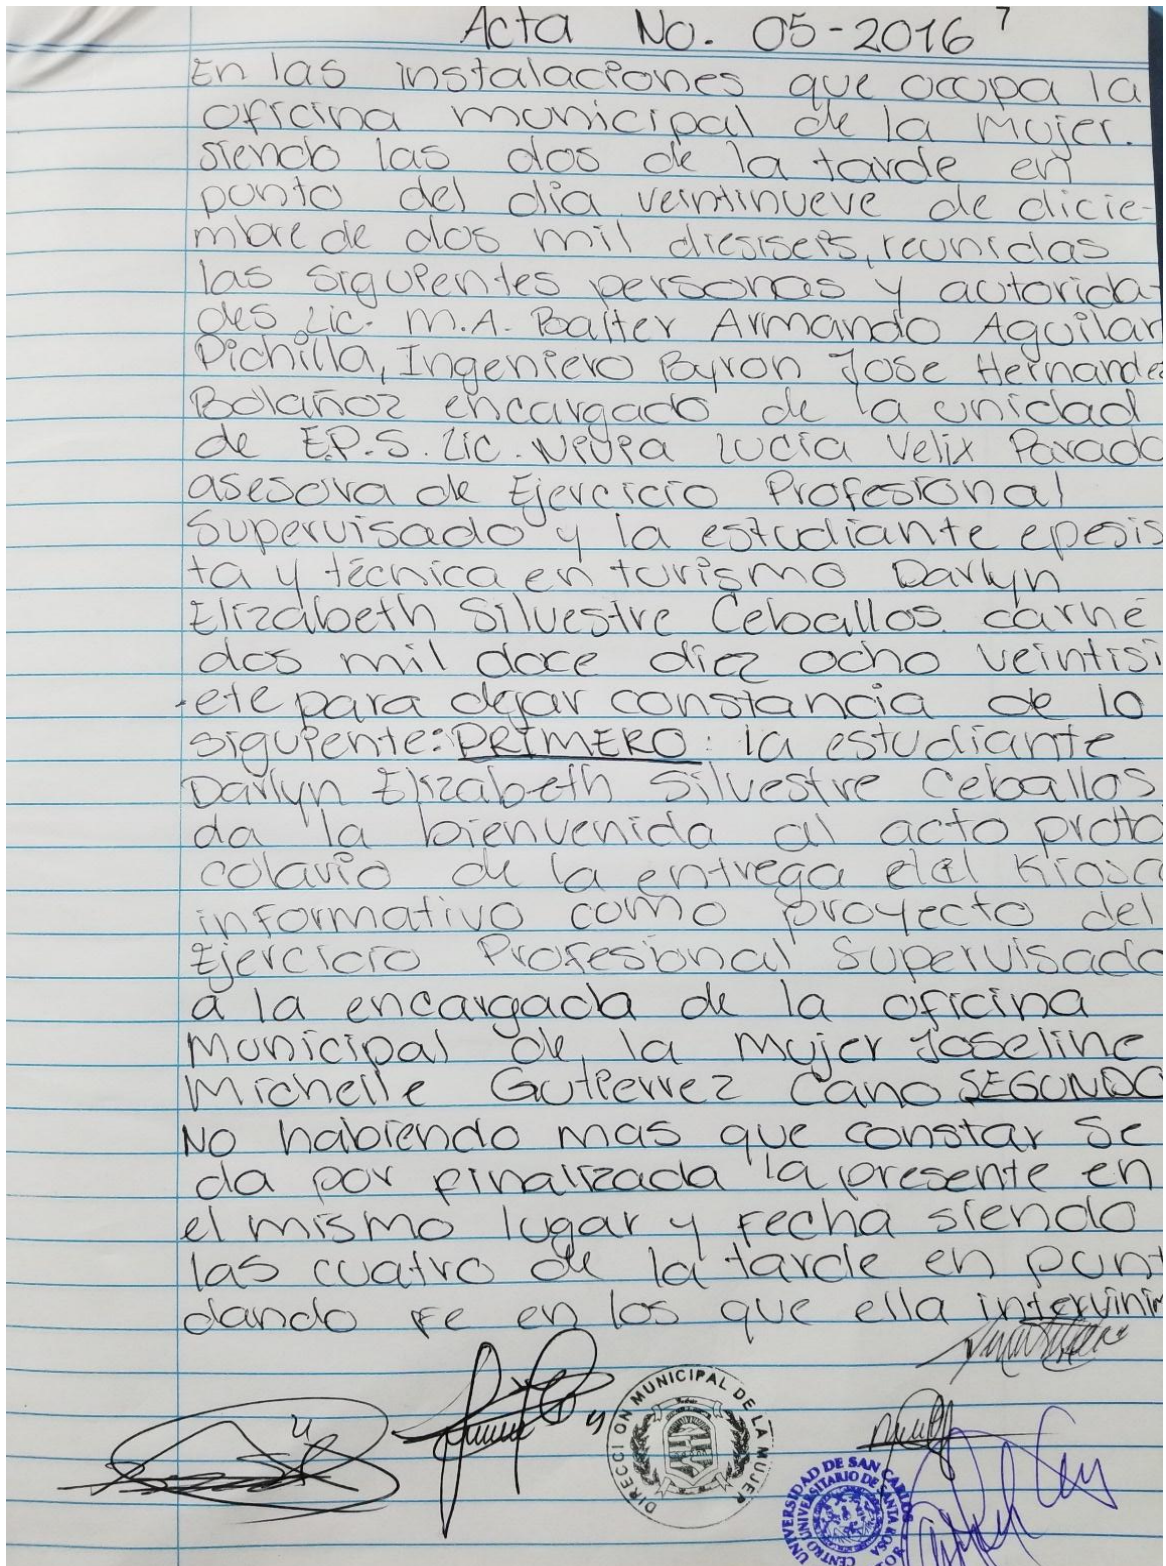 Acta No. 05-2016 7
En las instalaciones que ocupa la
oficina municipal de la Mujer.
siendo las dos de la tarde en
punto del día veintinueve de dicie-
mbre de dos mil diesiseis, reunidas
las siguientes personas y autorida-
des Lic. M.A. Balter Armando Aguilar
Pichilla, Ingeniero Byron Jose Hernandez
Bolañoz encargado de la unidad
de E.P.S. Lic. Lucía Velix Parada
asesora de Ejercicio Profesional
Supervisado y la estudiante epesis
ta y técnica en turismo Darlyn
Elizabeth Silvestre Ceballos carné
dos mil doce diez ocho veintisi
-ete para dejar constancia de lo
siguiente: PRIMERO: la estudiante
Darlyn Elizabeth Silvestre Ceballos
da la bienvenida al acto proto
colario de la entrega del Kiosco
informativo como proyecto del
Ejercicio Profesional Supervisado
a la encargada de la oficina
Municipal de la Mujer Joseline
Michelle Gutierrez Cano SEGUNDO
No habiendo mas que constar se
da por finalizada la presente en
el mismo lugar y fecha siendo
las cuatro de la tarde en punt
dando fe en los que ella intervini
DIRECCION MUNICIPAL DE LA MUJER
UNIVERSIDAD DE SAN CARLOS
CENTRO UNIVERSITARIO DE SANTA ROSA